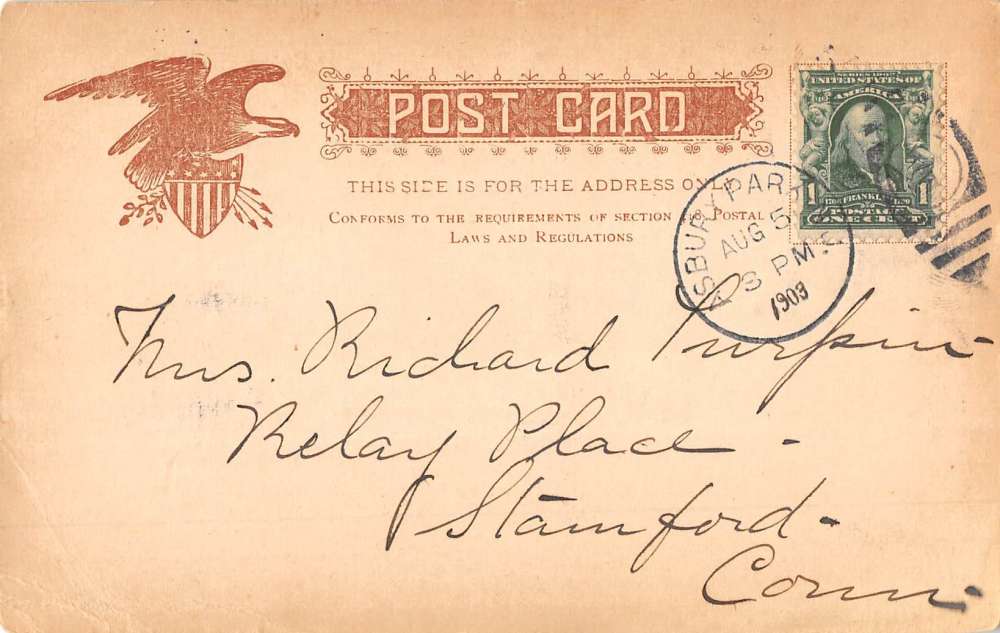 POST CARD
THIS SIDE IS FOR THE ADDRESS ONLY
CONFORMS TO THE REQUIREMENTS OF SECTION 418, POSTAL
LAWS AND REGULATIONS
SERIES 1902
UNITED STATES OF
AMERICA
1 FRANKLIN 1
POSTAGE
ONE CENT
ASBURY PARK
AUG 5
8 PM
1903
Mrs. Richard Turpin
Relay Place -
Stamford -
Conn.